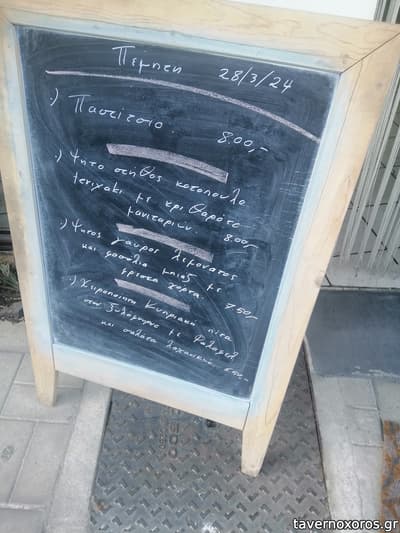 Πέμπτη 28/3/24
·) Παστίτσιο 8.00,-
·) Ψητο στηθος κοτοπουλο
teriyaki με κριθαρότο
μανιταριών 8.00,-
·) Ψητος γαυρος λεμονατος
και φασολια μιαξ με
φρεσκα χορτα 7,50,-
·) Χειροποιητη Κυπριακή πιτα
στον ξυλοφουρνο με Φαλαφελ
και σαλατα λαχανικων
tavernoxoros.gr